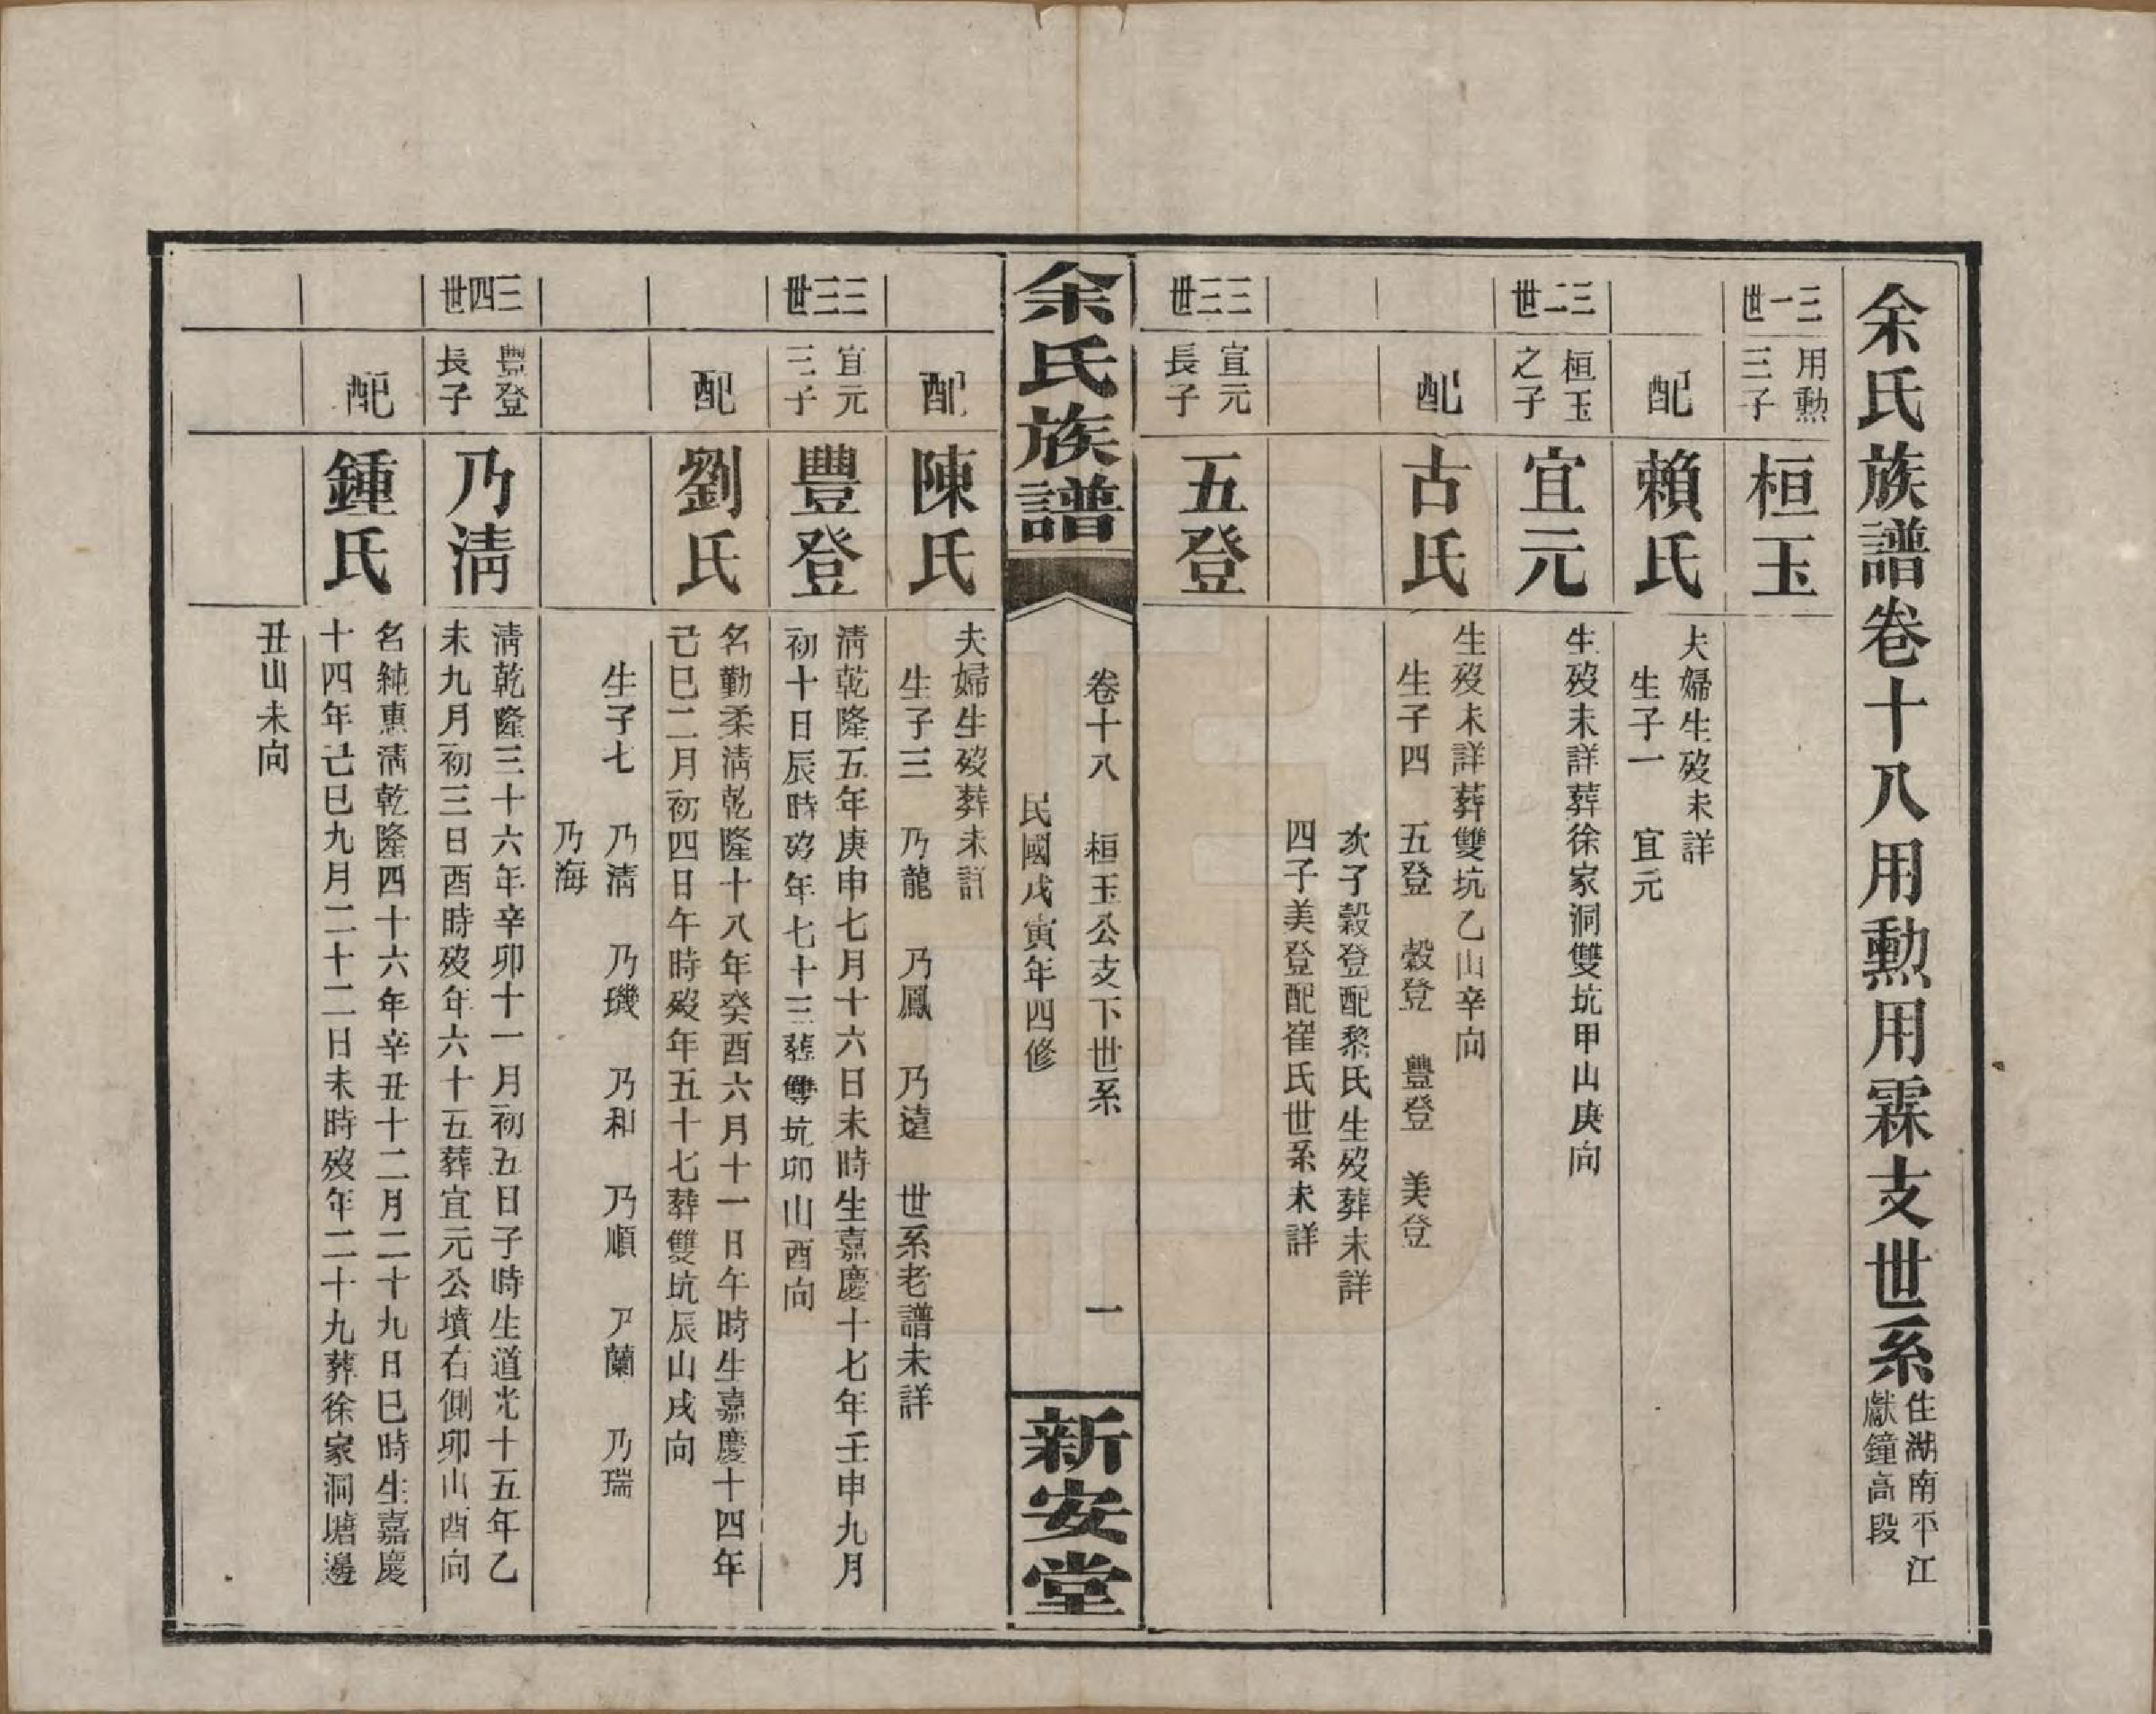 余氏族譜卷十八用勳用霖支世系
住湖南平江
獻鐘高段
三一世
用勳
三子
桓玉
配
賴氏
夫婦生歿未詳
生子一 宜元
三二世
桓玉
之子
宜元
生歿未詳葬徐家洞雙坑甲山庚向
配
古氏
生歿未詳葬雙坑乙山辛向
生子四 五登 穀登 豐登 美登
次子穀登配黎氏生歿葬未詳
四子美登配崔氏世系未詳
三三世
宜元
長子
五登
余氏族譜
卷十八 桓玉公支下世系 一
民國戊寅年四修
新安堂
配
陳氏
夫婦生歿葬未詳
生子三 乃龍 乃鳳 乃遠 世系老譜未詳
三三世
宜元
三子
豐登
淸乾隆五年庚申七月十六日未時生嘉慶十七年壬申九月
初十日辰時歿年七十三葬雙坑卯山酉向
配
劉氏
名勤柔淸乾隆十八年癸酉六月十一日午時生嘉慶十四年
己巳二月初四日午時歿年五十七葬雙坑辰山戌向
生子七 乃淸 乃璣 乃和 乃順 乃蘭 乃瑞
乃海
三四世
豐登
長子
乃淸
淸乾隆三十六年辛卯十一月初五日子時生道光十五年乙
未九月初三日酉時歿年六十五葬宜元公墳右側卯山酉向
配
鍾氏
名純惠淸乾隆四十六年辛丑十二月二十九日巳時生嘉慶
十四年己巳九月二十二日未時歿年二十九葬徐家洞塘邊
丑山未向